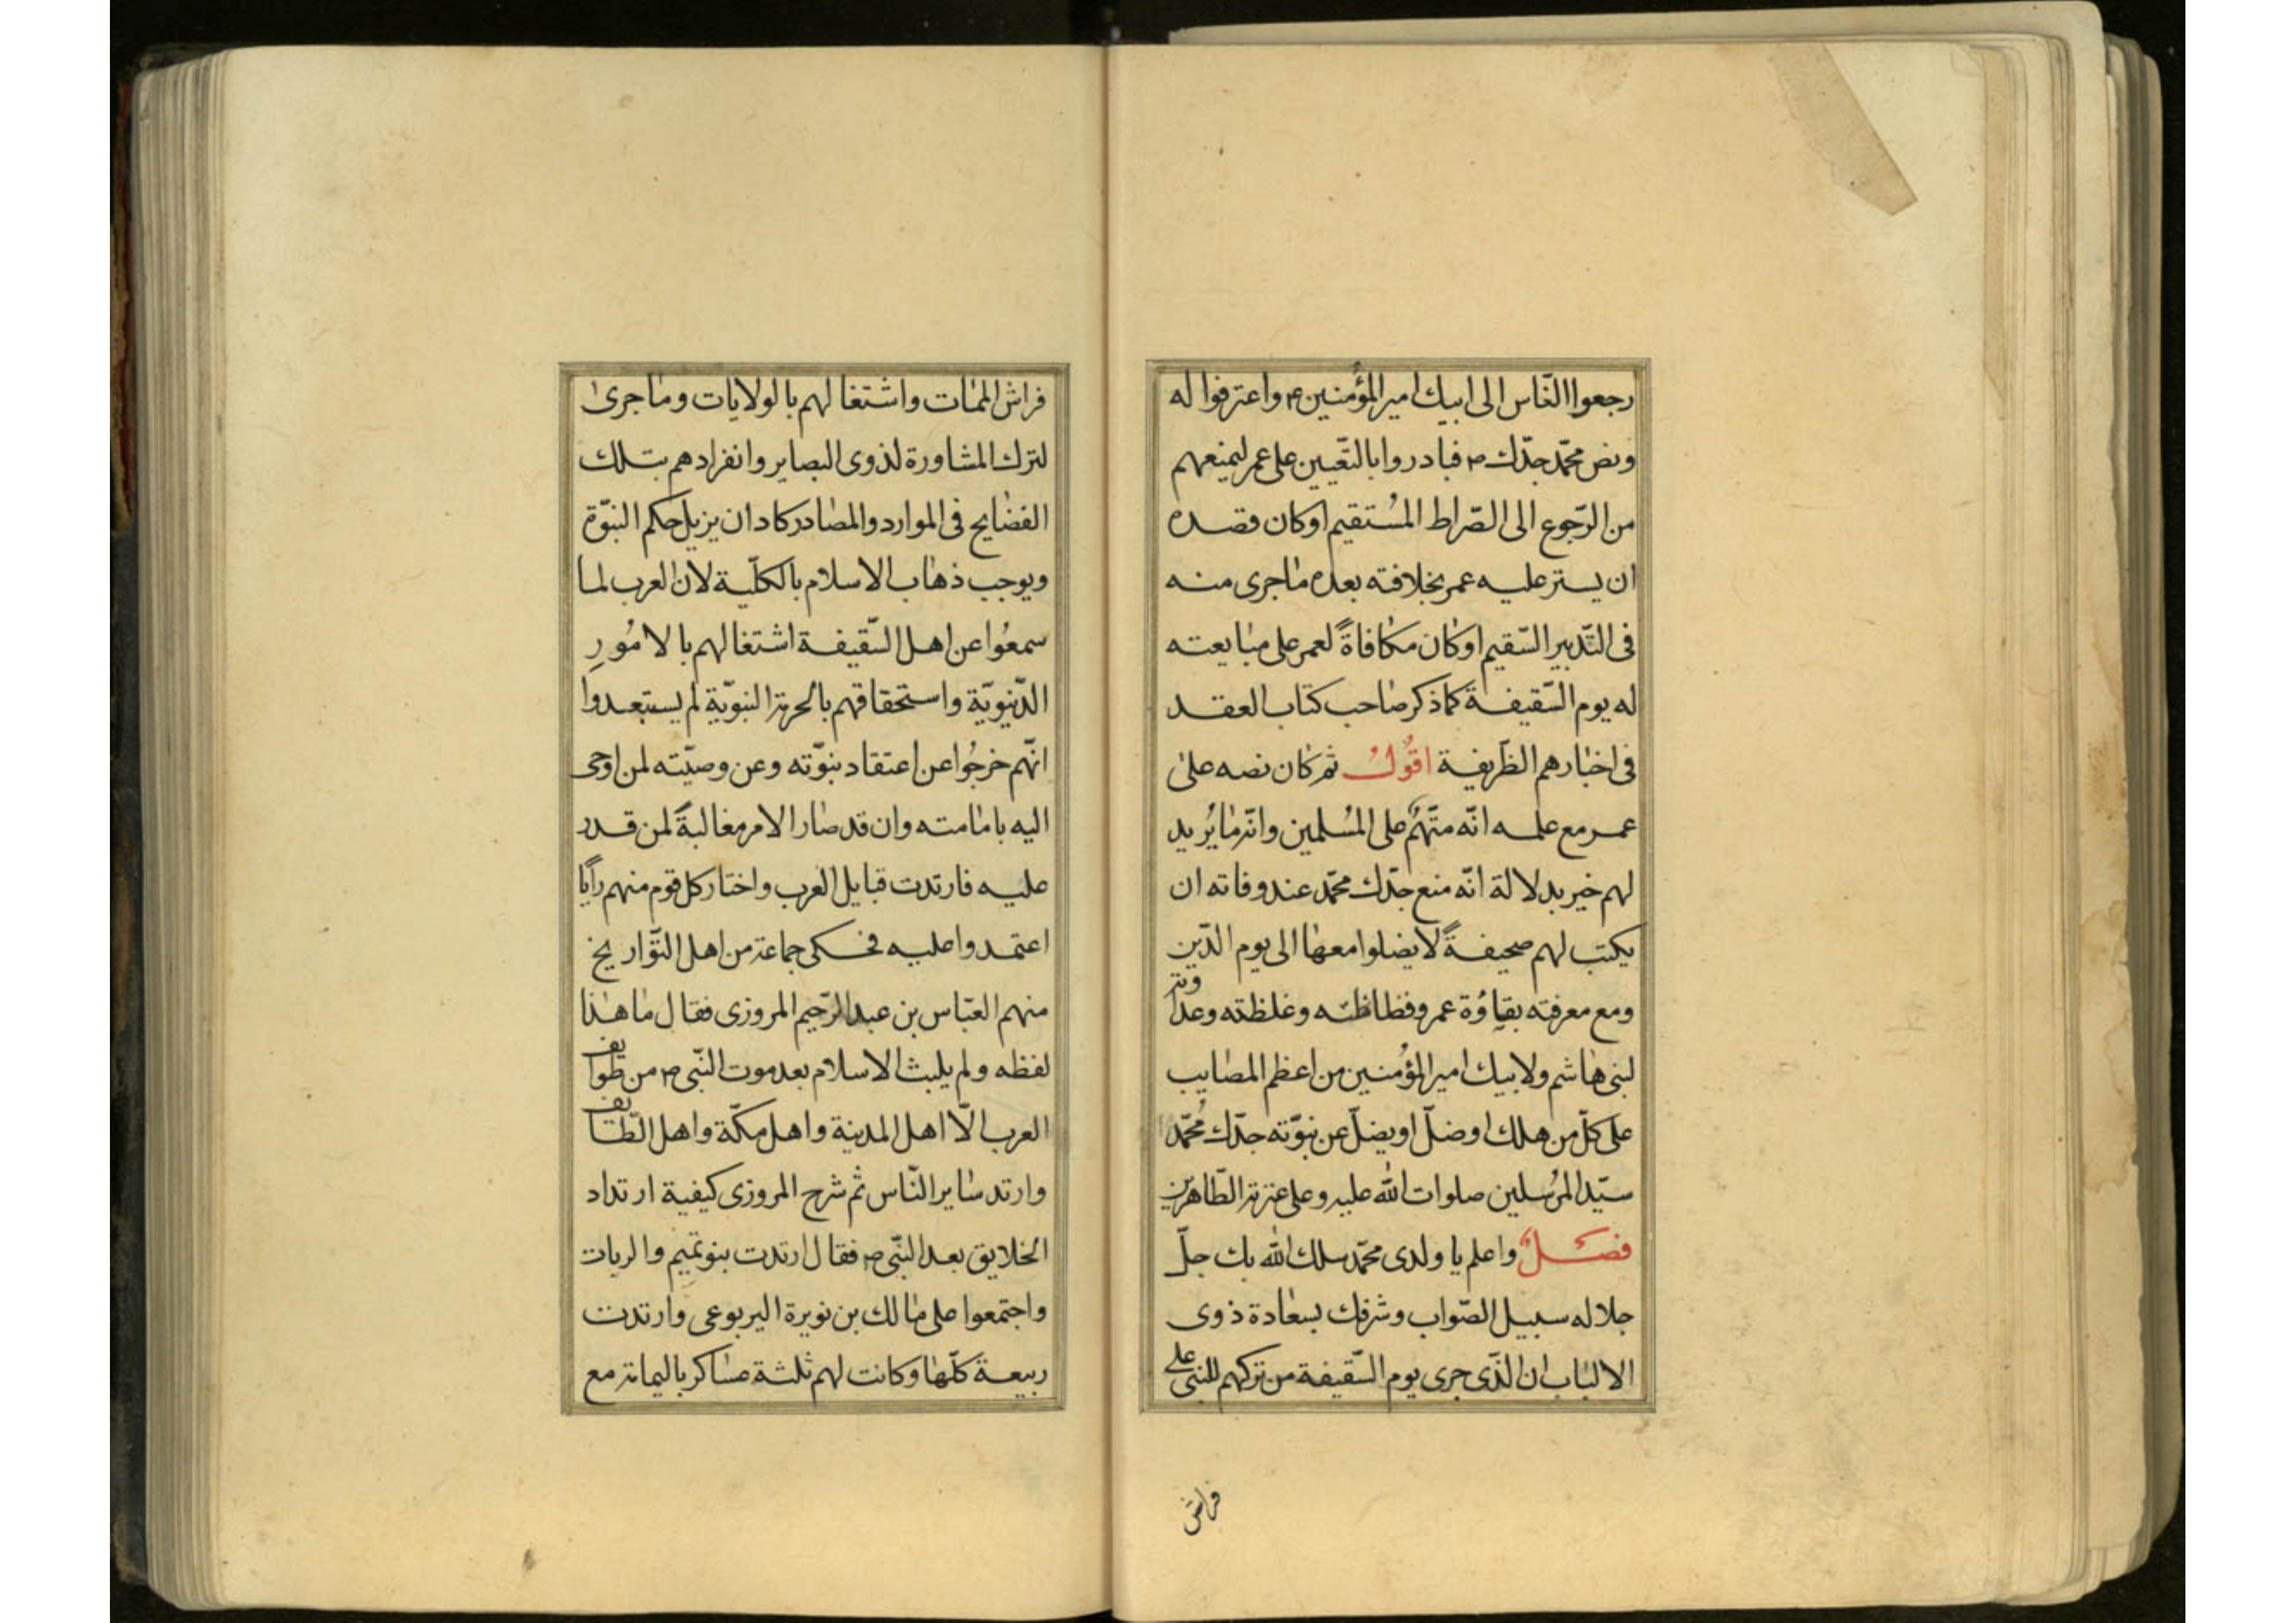 رجعوا النّاس الى ابيك امير المؤمنين ع واعترفوا له
ونص محمّد جدّك ص فبادروا بالتّعيين على عمر ليمنعهم
من الرّجوع الى الصّراط المُستقيم او كان قصده
ان يستر عليه عمر بخلافته بعده ما جرى منه
فى التّدبير السّقيم او كان مكافاةً لعمر على مبايعته
له يوم السّقيفة كما ذكر صاحب كتاب العقد
فى اخبارهم الظّريفة اقُولُ ثم كان نصه على
عمر مع علمه انّه متّهمٌ على المُسلمين وانّه ما يُريد
لهم خير بدلالة انّه منع جدّك محمّد عند وفاته ان
يكتب لهم صحيفةً لا يضلوا معها الى يوم الدّين
ومع معرفته بقباؤة عمر وفظاظته وغلظته وعداوته
لبنى هاشم ولابيك امير المؤمنين من اعظم المصايب
على كلّ من هلك او ضلّ او يضلّ عن نبوّته جدّك مُحمّد
سيّد المرُسلين صلوات الله عليه وعلى عترته الطّاهرين
فصلٌ واعلم يا ولدى محمّد سلك الله بك جلّ
جلاله سبيل الصّواب وشرفك بسعادة ذوى
الالباب ان الّذى جرى يوم السّقيفة من تركهم للنبى على
فراش
فراش الممات واشتغالهم بالولايات وما جرى
لترك المشاورة لذوى البصاير وانفرادهم بتلك
الفضايح فى الموارد والمصادر كاد ان يزيل حكم النبوّة
ويوجب ذهاب الاسلام بالكلّية لان العرب لما
سمعُوا عن اهل السّقيفة اشتغالهم بالامُورِ
الدّنيويّة واستحقاقهم بالحرمة النبويّة لم يستبعدوا
انّهم خرجُوا عن اعتقاد نبوّته وعن وصيّته لمن اوحى
اليه بامامته وان قد صار الامر مغالبةً لمن قدر
عليه فارتدت قبايل العرب واختار كل قوم منهم رأيا
اعتمدوا عليه فحكى جماعة من اهل التّواريخ
منهم العبّاس بن عبد الرّحيم المروزى فقال ما هذا
لفظه ولم يلبث الاسلام بعد موت النّبى ص من طوايف
العرب الّا اهل المدينة واهل مكّة واهل الطّايف
وارتد ساير النّاس ثم شرح المروزى كيفية ارتداد
الخلايق بعد النّبى ص فقال ارتدت بنو تميم والربات
واجتمعوا على مالك بن نويرة اليربوعى وارتدت
ربيعة كلّها وكانت لهم ثلثة عساكر باليمامة مع